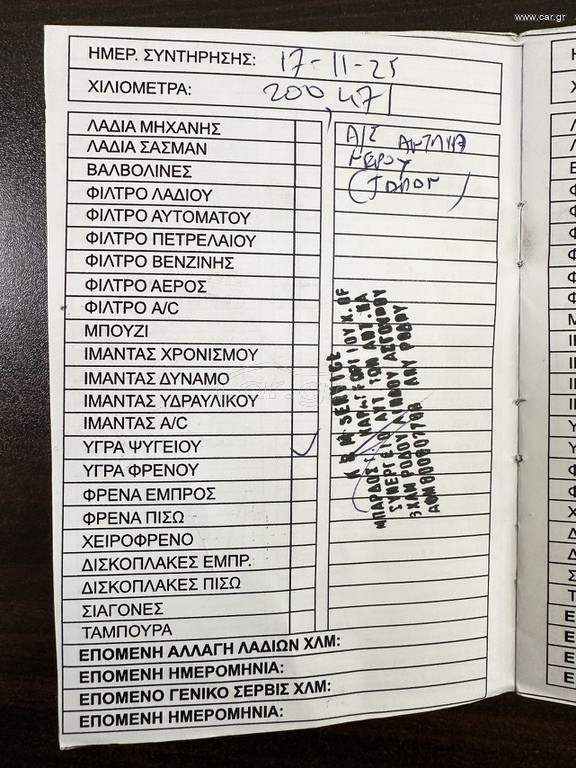 www.car.gr
ΗΜΕΡ. ΣΥΝΤΗΡΗΣΗΣ: 17-11-25
ΧΙΛΙΟΜΕΤΡΑ: 200,471
ΛΑΔΙΑ ΜΗΧΑΝΗΣ
ΛΑΔΙΑ ΣΑΣΜΑΝ
ΒΑΛΒΟΛΙΝΕΣ
ΦΙΛΤΡΟ ΛΑΔΙΟΥ
ΦΙΛΤΡΟ ΑΥΤΟΜΑΤΟΥ
ΦΙΛΤΡΟ ΠΕΤΡΕΛΑΙΟΥ
ΦΙΛΤΡΟ ΒΕΝΖΙΝΗΣ
ΦΙΛΤΡΟ ΑΕΡΟΣ
ΦΙΛΤΡΟ A/C
ΜΠΟΥΖΙ
ΙΜΑΝΤΑΣ ΧΡΟΝΙΣΜΟΥ
ΙΜΑΝΤΑΣ ΔΥΝΑΜΟ
ΙΜΑΝΤΑΣ ΥΔΡΑΥΛΙΚΟΥ
ΙΜΑΝΤΑΣ A/C
ΥΓΡΑ ΨΥΓΕΙΟΥ ✓
ΥΓΡΑ ΦΡΕΝΟΥ
ΦΡΕΝΑ ΕΜΠΡΟΣ
ΦΡΕΝΑ ΠΙΣΩ
ΧΕΙΡΟΦΡΕΝΟ
ΔΙΣΚΟΠΛΑΚΕΣ ΕΜΠΡ.
ΔΙΣΚΟΠΛΑΚΕΣ ΠΙΣΩ
ΣΙΑΓΟΝΕΣ
ΤΑΜΠΟΥΡΑ
ΕΠΟΜΕΝΗ ΑΛΛΑΓΗ ΛΑΔΙΩΝ ΧΛΜ:
ΕΠΟΜΕΝΗ ΗΜΕΡΟΜΗΝΙΑ:
ΕΠΟΜΕΝΟ ΓΕΝΙΚΟ ΣΕΡΒΙΣ ΧΛΜ:
ΕΠΟΜΕΝΗ ΗΜΕΡΟΜΗΝΙΑ:
Α/Σ ΑΝΤΛΙΑ
ΝΕΡΟΥ
SERVICE
ΣΥΝΕΡΓΕΙΟ ΑΥΤ
ΡΟΔΟΥ